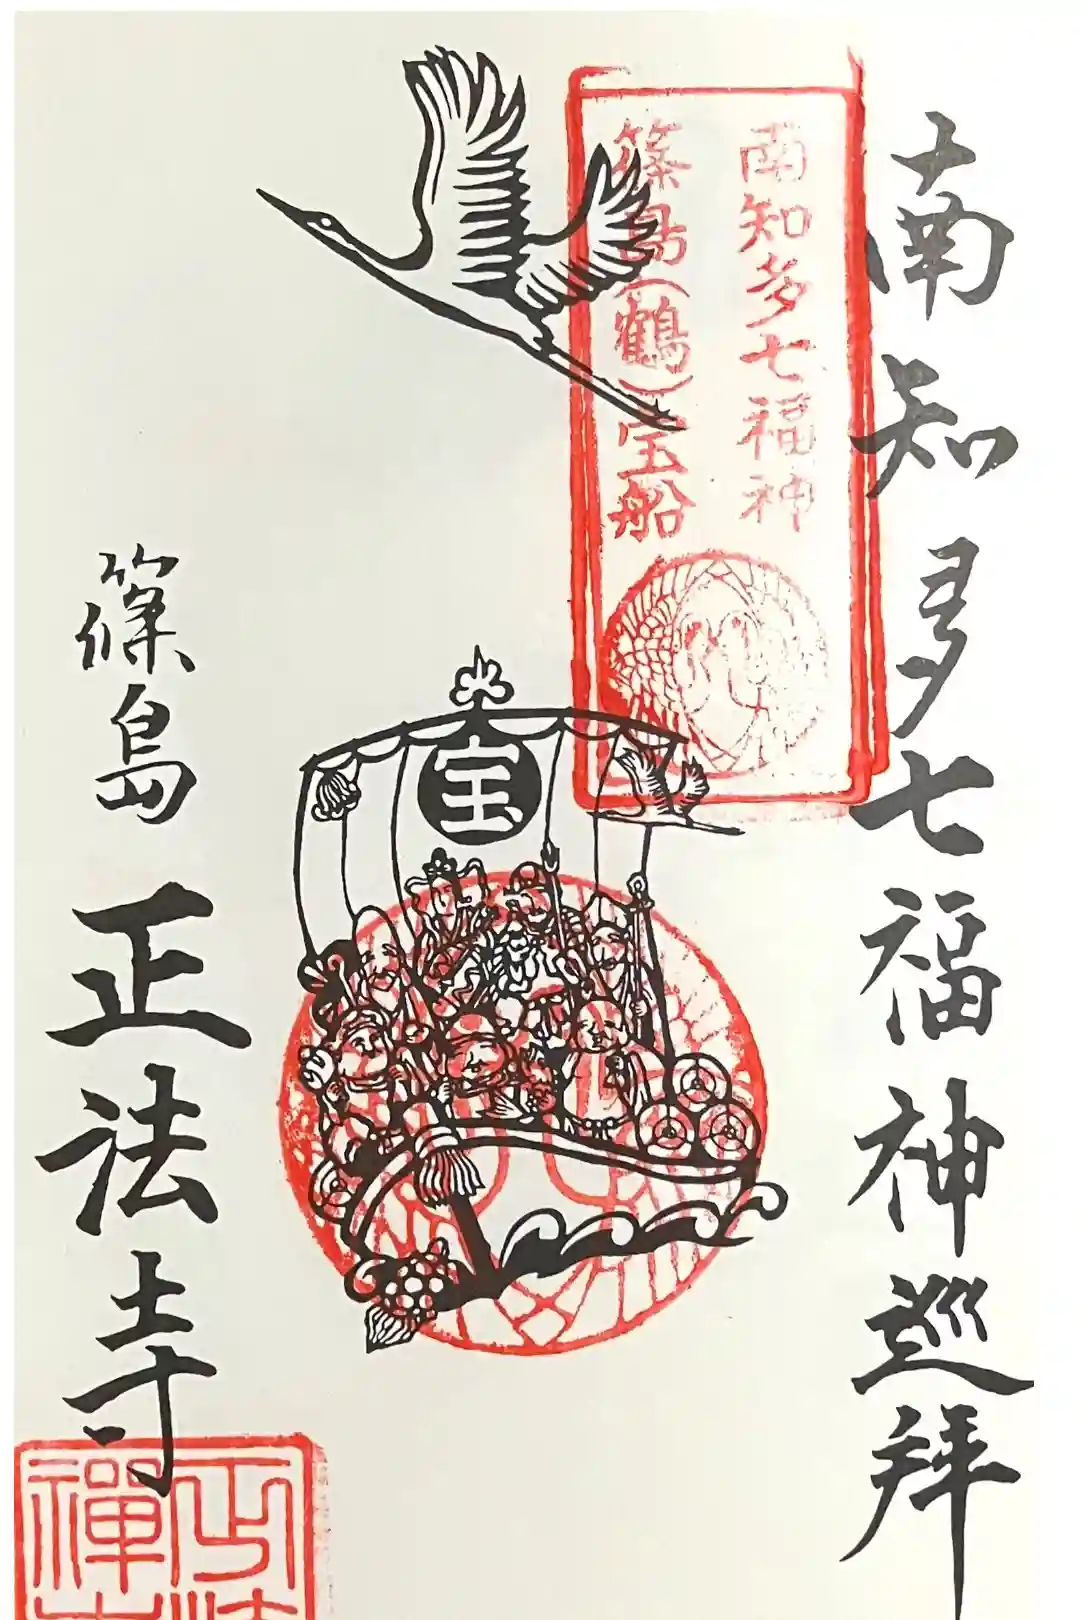 南知多七福神巡拝
南知多七福神
篠島(鶴)宝船
宝
篠島 正法寺
正法
禅